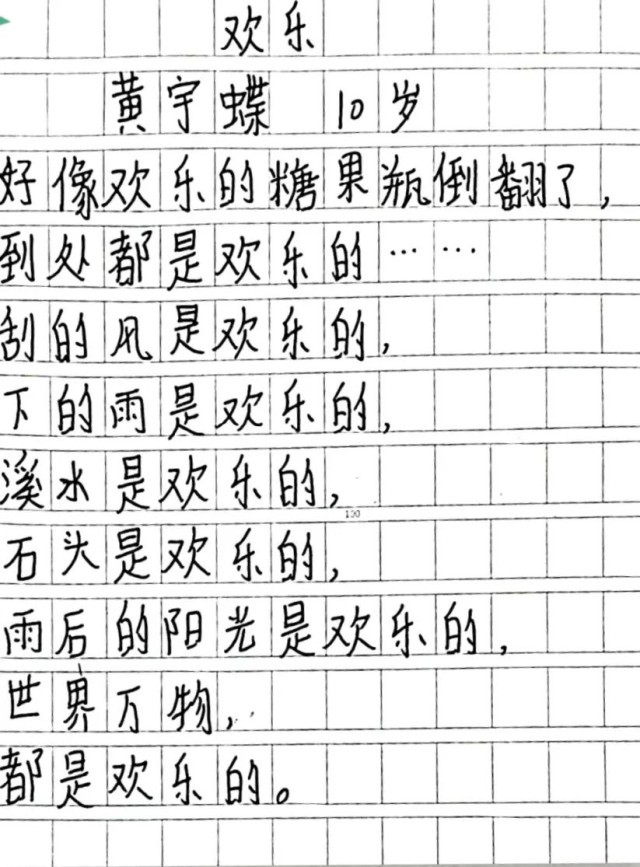 欢乐
黄宇蝶 10岁
好像欢乐的糖果瓶倒翻了，
到处都是欢乐的……
刮的风是欢乐的，
下的雨是欢乐的，
溪水是欢乐的，
100
石头是欢乐的，
雨后的阳光是欢乐的，
世界万物，
都是欢乐的。